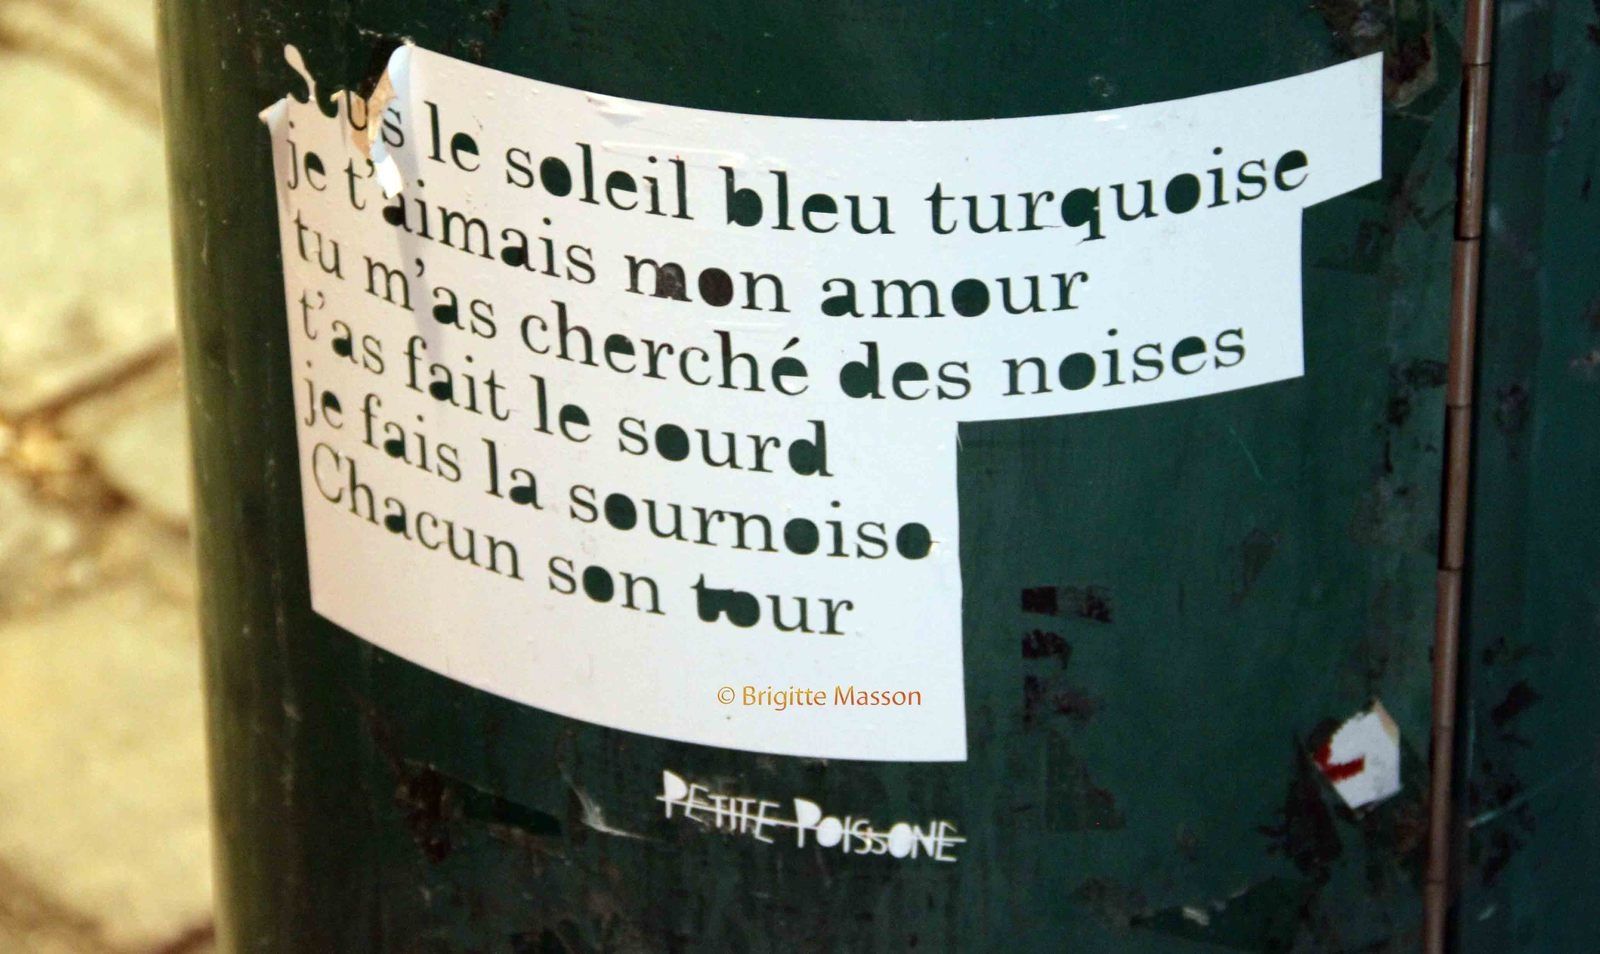 Sous le soleil bleu turquoise
je t'aimais mon amour
tu m'as cherché des noises
t'as fait le sourd
je fais la sournoise
Chacun son tour
© Brigitte Masson
PETITE POISSONE